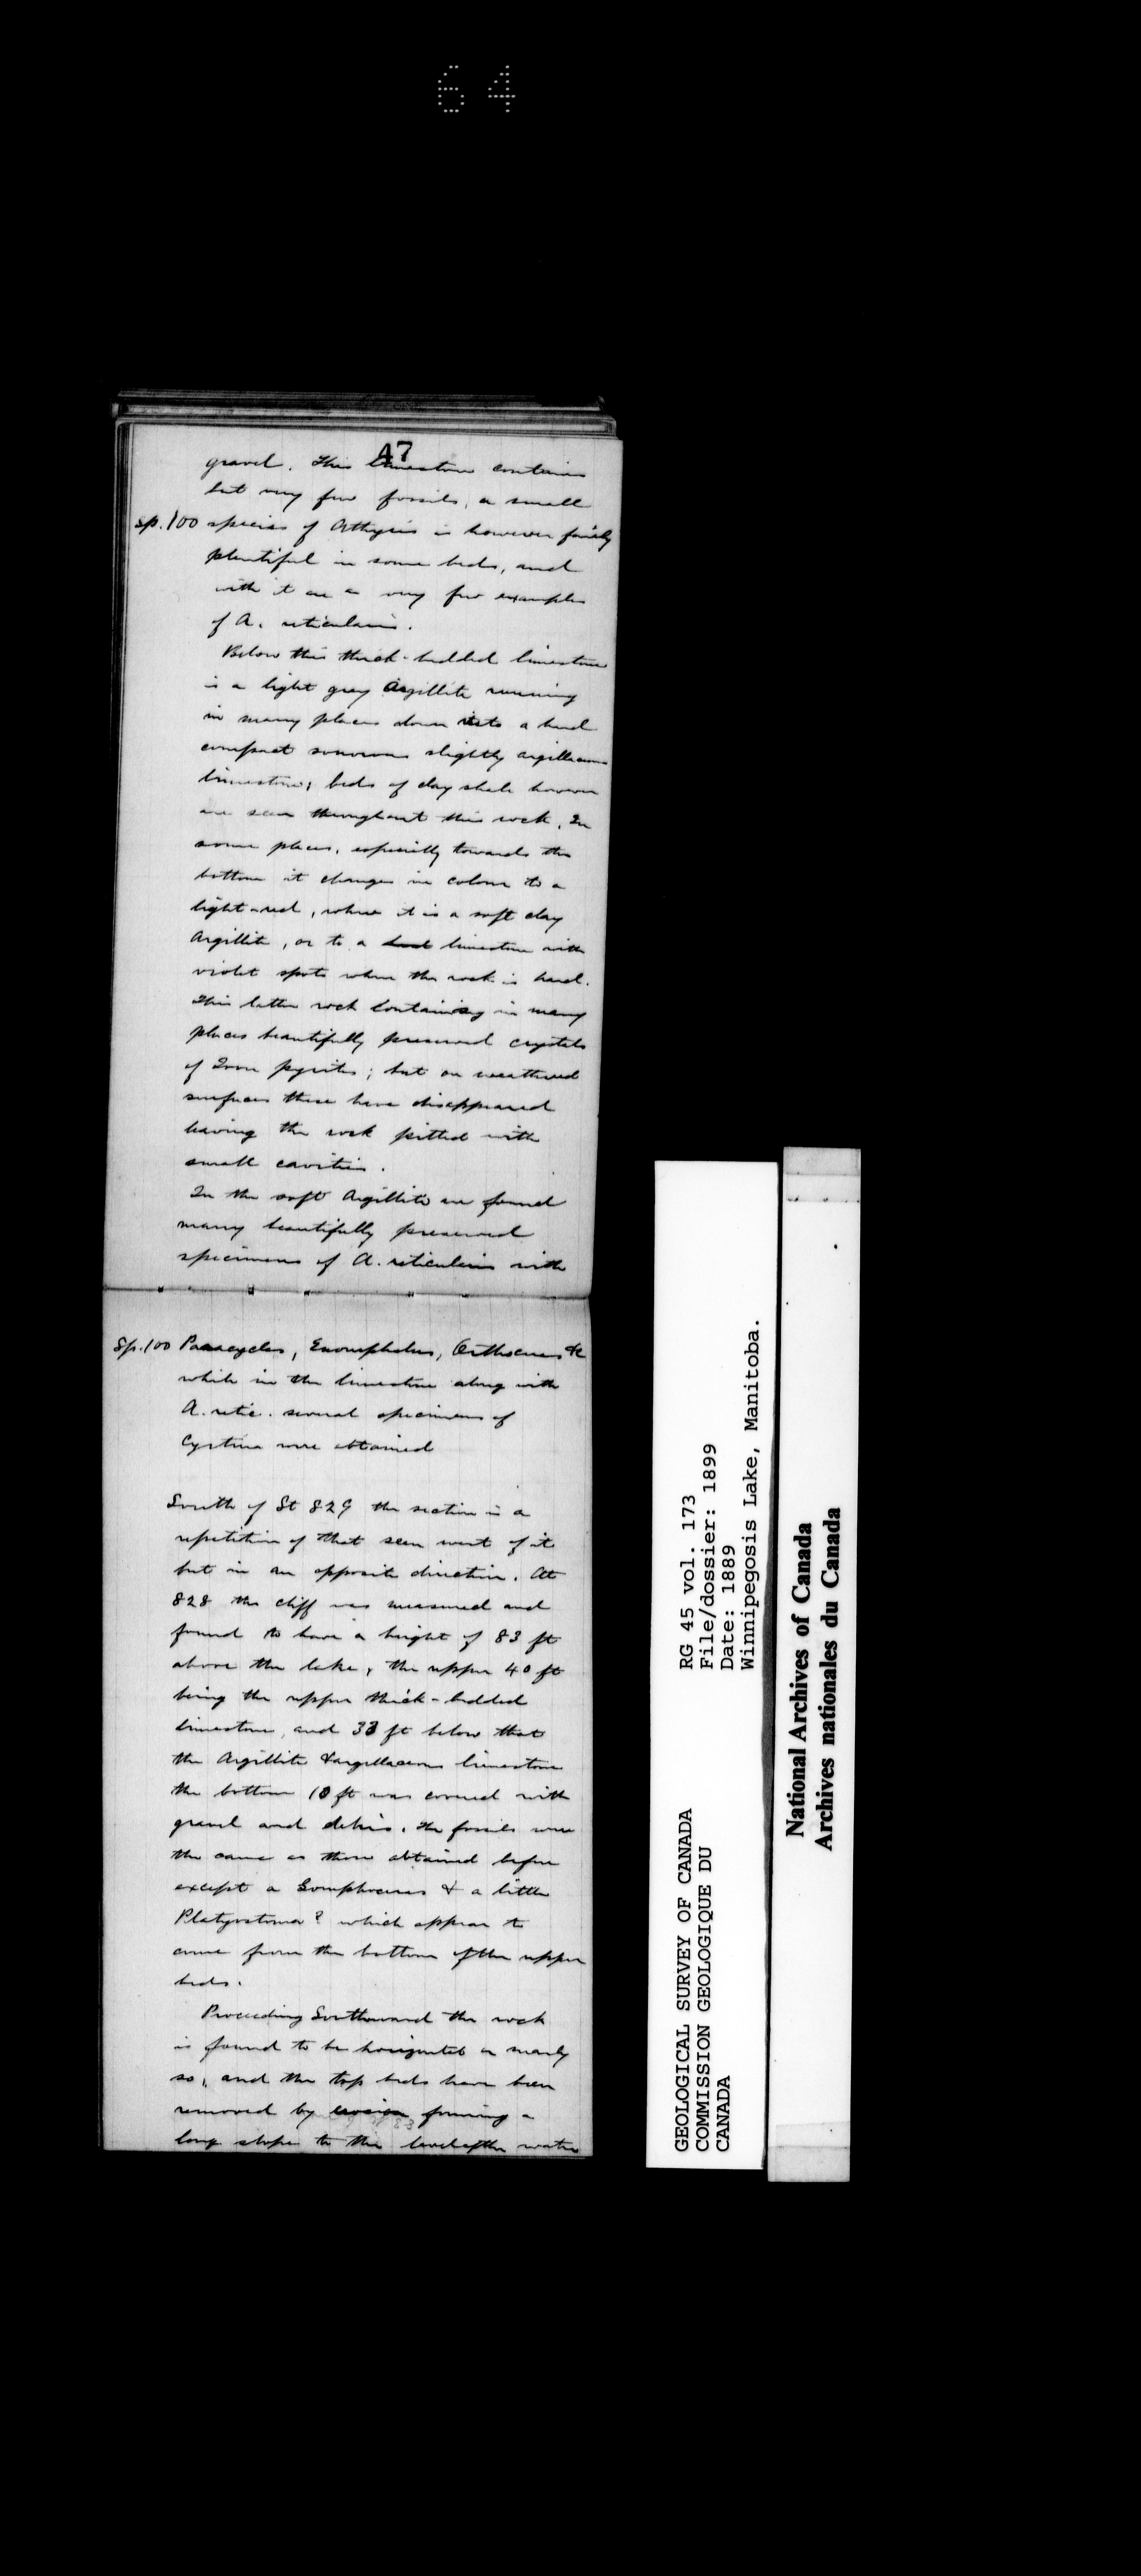 64
47
gravel. This limestone contains
but very few fossils, a small
Sp. 100 species of Athyris is however fairly
plentiful in some beds, and
with it are a very few examples
of A. reticularis.
Below this thick-bedded limestone
is a light grey Argillite running
in many places down into a hard
compact sonorous slightly argillaceous
limestone; beds of clay shale however
are seen throughout this rock. In
some places, especially towards the
bottom it changes in colour to a
light-red, where it is a soft clay
Argillite, or to a hard limestone with
violet spots where the rock is hard.
This latter rock containing in many
places beautifully preserved crystals
of Iron pyrites; but on weathered
surfaces these have disappeared
leaving the rock pitted with
small cavities.
In the soft Argillite we found
many beautifully preserved
specimens of A. reticularis with
Sp. 100 Paracyclas, Euomphalus, Orthoceras &c
while in the limestone along with
A. retic. several specimens of
Cyrtina were obtained
South of St 829 the section is a
repetition of that seen west of it
but in an opposite direction. At
828 the cliff was measured and
found to have a height of 83 ft
above the lake, the upper 40 ft
being the upper thick-bedded
limestone, and 33 ft below that
the Argillite & argillaceous limestone
the bottom 10 ft was covered with
gravel and debris. The fossils were
the same as those obtained before
except a Gomphoceras & a little
Platyostoma? which appear to
come from the bottom of the upper
beds.
Proceeding Southward the rock
is found to be horizontal or nearly
so, and the top beds have been
removed by erosion forming a
long slope to the level of the water
GEOLOGICAL SURVEY OF CANADA
COMMISSION GEOLOGIQUE DU
CANADA
RG 45 vol. 173
File/dossier: 1899
Date: 1889
Winnipegosis Lake, Manitoba.
National Archives of Canada
Archives nationales du Canada